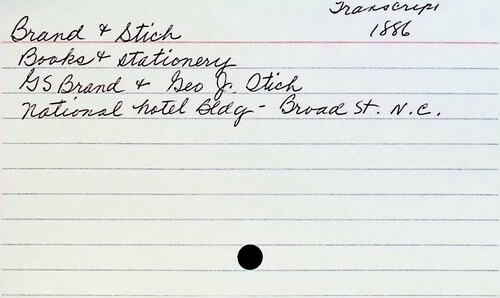 Transcript
1886
Brand & Stich
Books & stationery
GS Brand & Geo J. Stich
National hotel Bldg - Broad St. N.C.